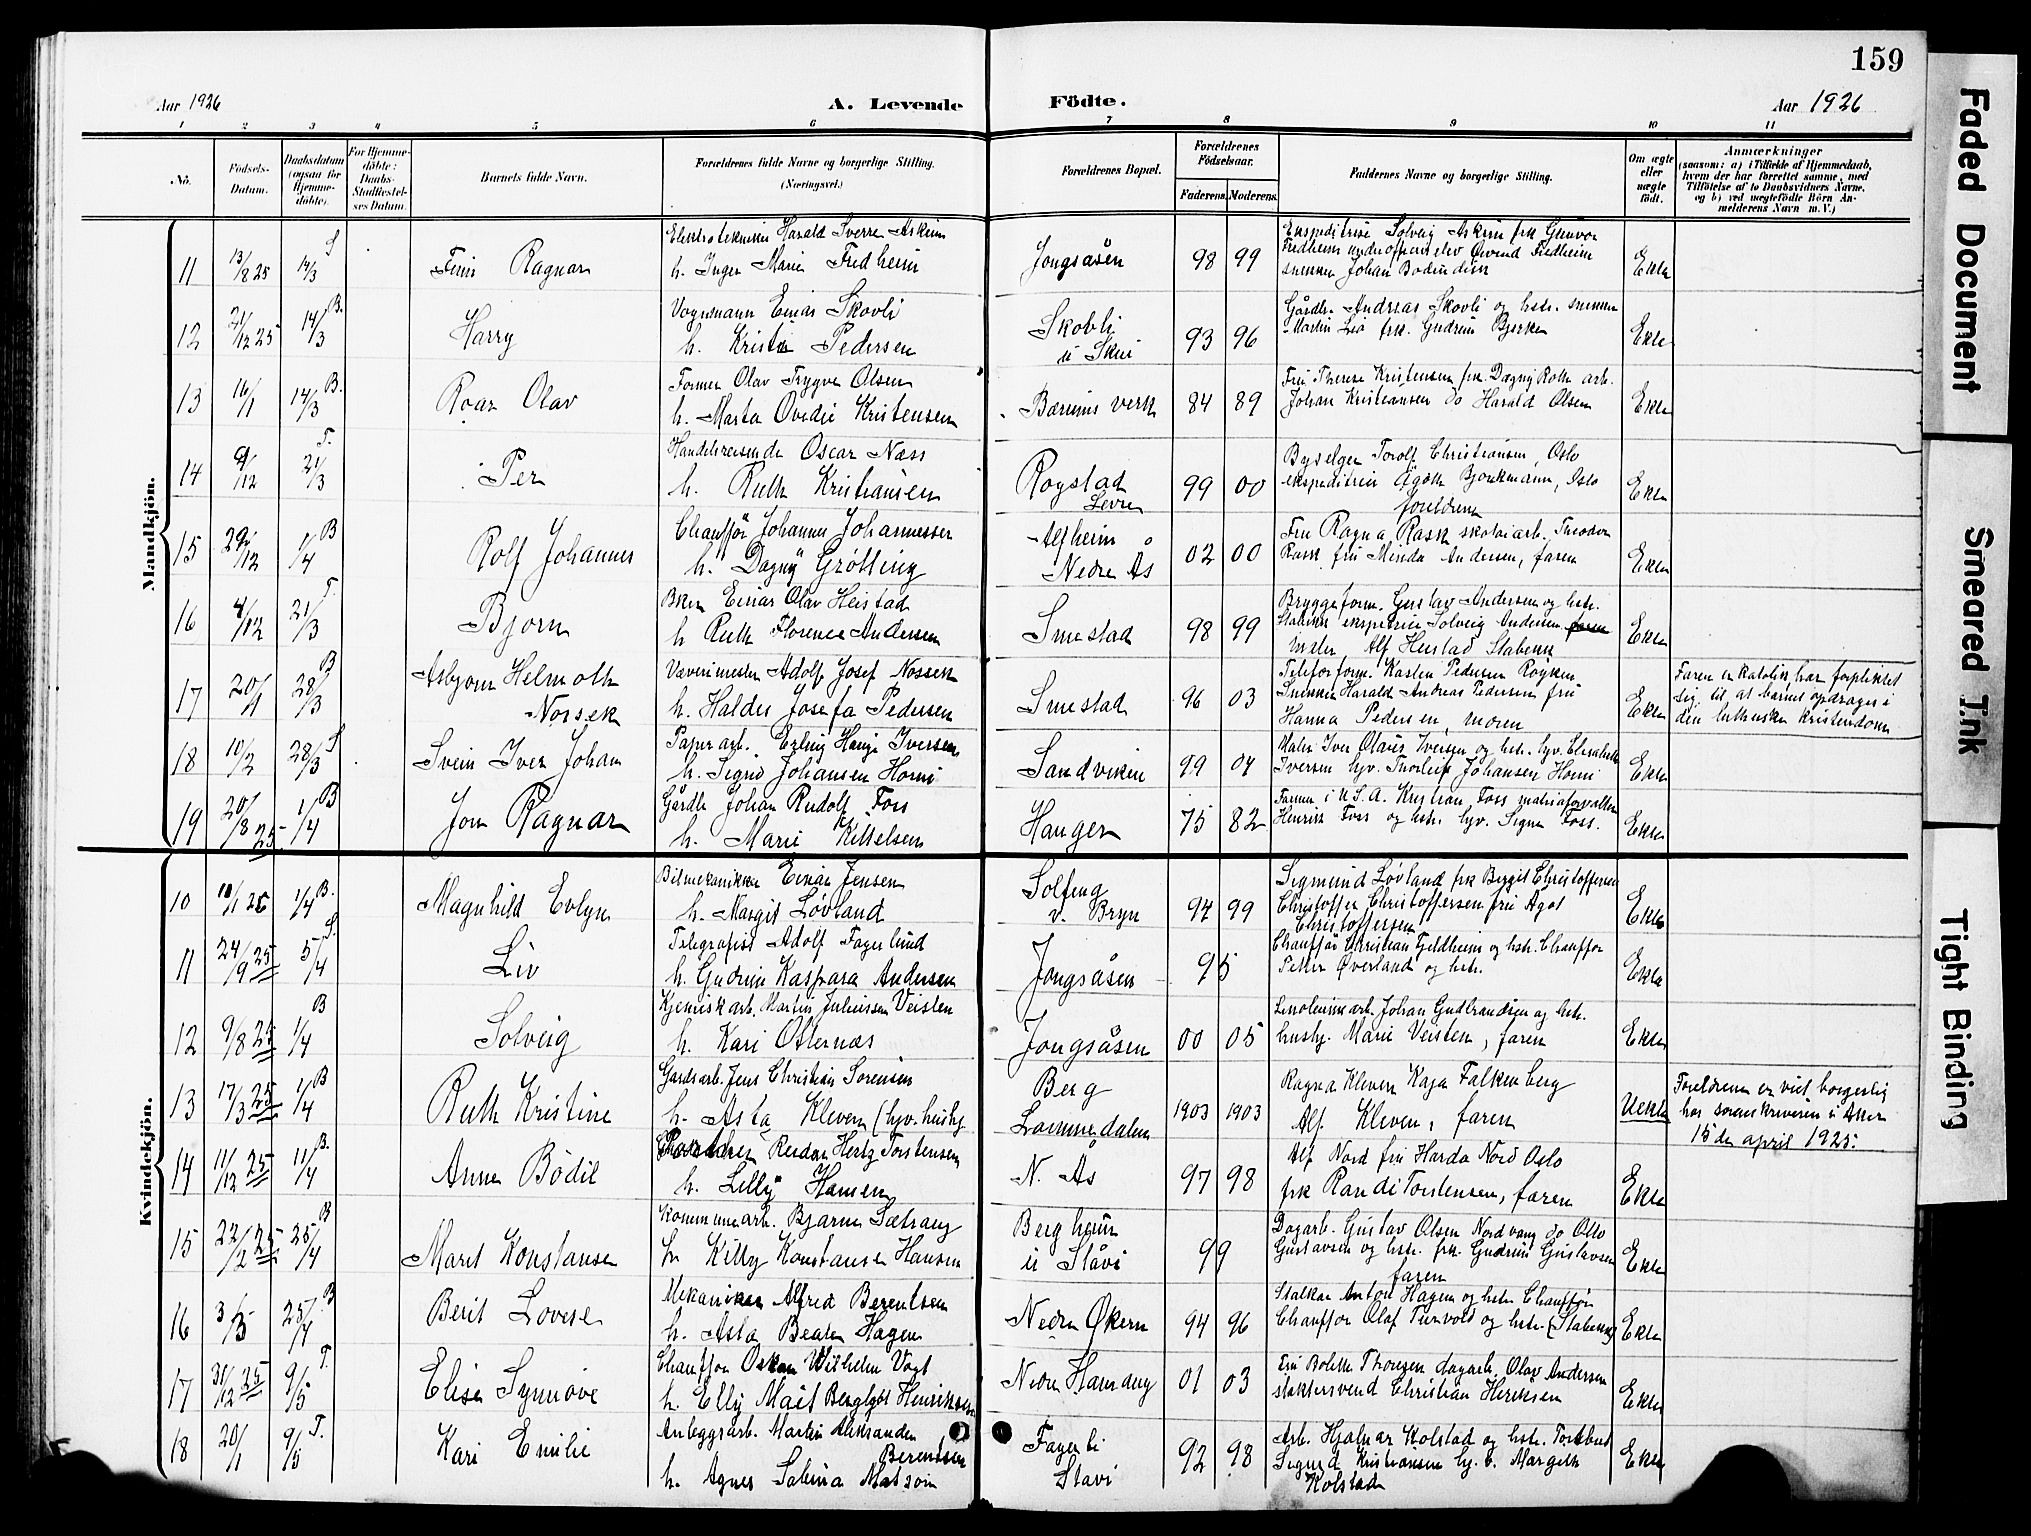 159
Aar 1926
A. Levende Födte.
Aar 1926
1 2 3 4 5 6 7 8 9 10 11
No.
Födsels-
Datum.
Daabsdatum
(ogsaa for
Hjemme-
döbte).
For Hjemme-
döbte:
Daabs-
Stadfæstel-
ses Datum.
Barnets fulde Navn.
Forældrenes fulde Navne og borgerlige Stilling.
(Næringsvei.)
Forældrenes Bopæl.
Forældrenes
Födselsaar.
Faderens. Moderens.
Faddernes Navne og borgerlige Stilling.
Om ægte
eller
uægte
födt.
Anmærkninger
(saasom: a) i Tilfælde af Hjemmedaab,
hvem der har forrettet samme, med
Tilföielse af to Daabsvidners Navne,
og b) ved uægtefödte Börn An-
melderens Navn m. V.)
Mandkjön.
11 13/8 25 14/3 S Finn Ragnar
Elektrotekniker Harald Sverre Askim
h. Inger Marie Fredheim
Jongsåsen 98 99
Ekspeditrise Solveig Askim frk Gunvor
Fredheim underofficerselev Øivind Fredheim
snekker Johan Bodindsen
Ekte
12 21/12 25 14/3 B. Harry
Vognmann Einar Skovli
h. Kristin Pedersen
Skovli
i Skui 93 96
Gårdbr. Andreas Skovli og hstr. snekker
Martin Lio frk. Gudrun Bjerke
Ekte
13 16/1 14/3 B. Roar Olav
Former Olav Trygve Olsen
h. Marta Ovedie Kristensen
Bærums verk 84 89
Fru Therese Kristensen frk. Dagny Roth arb.
Johan Kristiansen do Harald Olsen
Ekte
14 9/12 21/3 T. Per
Handelsreisende Oscar Næss
h. Ruth Kristiansen
Roystad
Levre 99 00
Byselger Torolf Christiansen, Oslo
ekspeditrise Ågoth Bjorkmann, Oslo
foreldrene
Ekte
15 29/12 1/4 B Rolf Johannes
Chauffør Johannes Johannessen
h. Dagny Grøtting
Alfheim
Nedre Ås 02 00
Fru Ragna Rask skotøiarb. Theodor
Rask fru Minda Andersen, faren
Ekte
16 4/12 21/3 T. Bjorn
Einar Olav Heistad
h Ruth Florence Andersen
Smestad 98 99
Bryggeform. Gustav Andersen og hstr.
Stabekk ekspetrise Solveig Andersen faren
Maler Alf Heistad Stabekk
Ekte
17 20/1 28/3 B Asbjorn Helmoth
Norsek
Væverimester Adolf Josef Nossek
h. Haldis Josefa Pedersen
Smestad 96 03
Telefonform. Kasten Pedersen Røyken
Snekker Harald Andreas Pedersen fru
Hanna Pedersen, moren
Ekte
Faren er katolik har forpliktet
sig til at barnet opdrages i
den lutherske kristendom
18 10/2 28/3 S Svein Iver Johan
Papirarb. Erling Hauge Iversen
h. Sigrid Johansen Horni
Sandviken 99 04
Maler Iver Olaus Iversen og hstr. hjv. Elisabeth
Iversen hjv. Thorleif Johansen Horni
Ekte
19 20/8 25 1/4 B Jon Ragnar
Gårdbr Johan Rudolf Foss
h. Marie Kittelsen
Hauger 75 82
Farmer i U.S.A. Kristian Foss materialforvalter
Henrik Foss og hstr. hjv. Signe Foss.
Ekte
Kvindekjön.
10 10/1 26 1/4 B. Magnhild Evlyn
Bilmekaniker Einar Jensen
h. Margit Løvland
Solfeng
v. Bryn 94 99
Sigmund Løvland frk Birgit Christoffersen
Christoffer Christoffersen fru Agot
Christoffersen
Ekte
11 24/9 25 5/4 S. Liv
Telegrafist Adolf Fagerlund
h. Gudrun Kaspara Andersen
Jongsåsen 95
Chauffør Christian Fjeldheim og hstr. Chauffør
Petter Øverland og hstr.
Ekte
12 9/8 25 1/4 B Solveig
Kjemisk arb. Martin Juliussen Veisten
h. Kari Osternæs
Jongsåsen 00 05
Linoleumarb. Johan Gudbrandsen og hstr.
husbg. Marie Veisten, faren
Ekte
13 17/3 25 1/4 B Ruth Kristine
Gardsarb. Jens Christian Sorensen
h. Asta Kleven (hjv. husbg.
Berg
Lommedalen 1903 1903
Ragna Kleven Kaja Falkenberg
Alf Kleven, faren
Uekte
Foreldrene er viet borgerlig
hos sorenskriveren i Aker
15de april 1925.
14 11/12 25 11/4 B. Anne Bödil
Reidar Hertz Torstensen
h. Lilly Hansen
N. Ås 97 98
Alf Nord fru Harda Nord Oslo
frk Randi Torstensen, faren
Ekte
15 22/2 25 25/4 B Marit Konstanse
Kommunearb. Bjarne Sætrang
h Killy Konstanse Hansen
Bergheim
i Stavi 99
Dagarb. Gustav Olsen Nordvang do Otto
Gustavsen og hstr. frk. Gudrun Gustavsen
faren
Ekte
16 3/3 25/4 B Berit Lovise
Mekaniker Alfred Berentsen
h. Asta Beate Hagen
Nedre Økern 94 96
Stalkar Anton Hagen og hstr Chauffør
Chauffør Olaf Turvold og hstr. (Stabekk)
Ekte
17 31/12 25 9/5 T. Elise Synnøve
Chauffør Oskar Wilhelm Vogt
h. Elly Mait Bergljot Henriksen
Nedre Hamang 01 03
Fru Bolette Thonsen dagarb. Olav Andersen
slaktersvend Christian Heriksen
Ekte
18 20/1 9/5 T. Kari Emilie
Anleggsarb. Martin Aleksander
Berentsen
h. Agnes Sabina Matson
Fagerli
Stavi 92 98
Arb. Hjalmar Kolstad og hstr. Torstbend
Sigurd Kristiansen hj. b. Margith
Kolstad
Ekte
Faded Document
Smeared Ink
Tight Binding